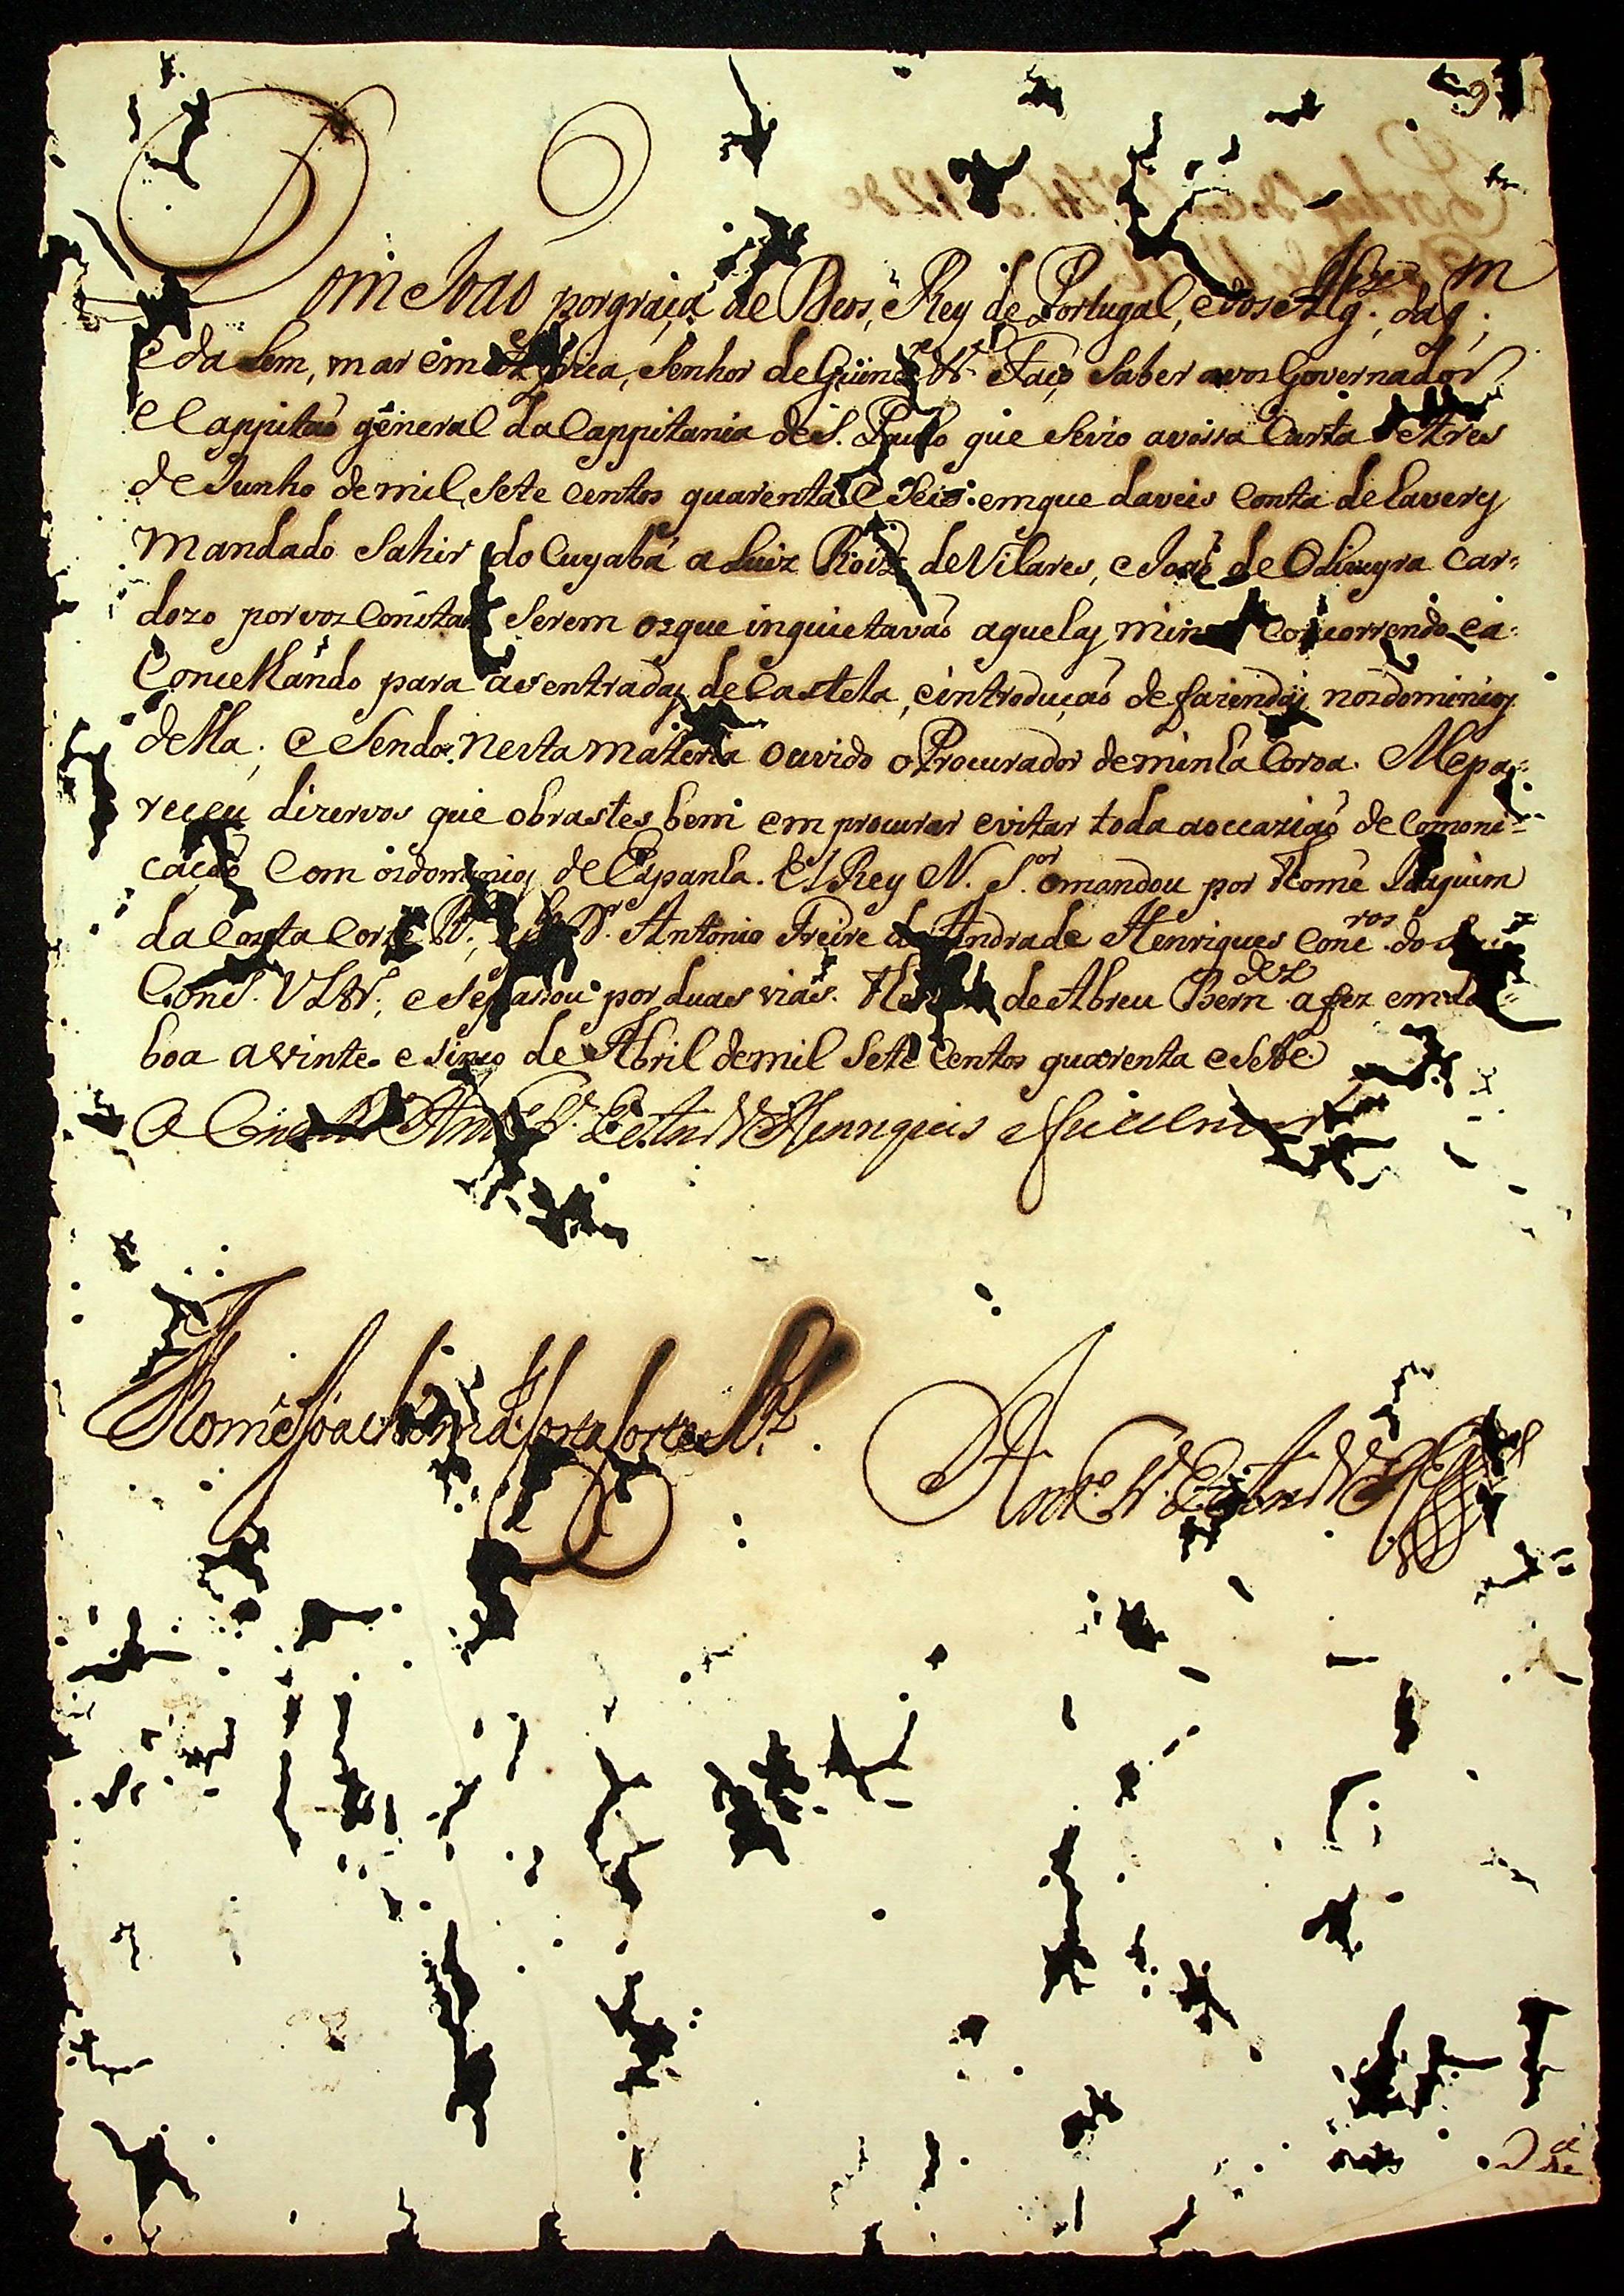 Dom Joaõ por graça de Deos, Rey de Portugal, e dos Alg.es, daq.m
e da lem, mar em Africa, Senhor de Guiné &.ª Faço saber a vos Governador
e Cappitaõ general da Cappitania de S. Paulo que se vio a vossa Carta de tres
de Junho de mil, sete centos quarenta e seis: em que daveis conta de haverẽ
mandado sahir do Cuyabá a Luiz Roiz de Vilares, e Joaõ de Oliveyra Car=
dozo por vos constar serem os que inquietavaõ aquelas minas concorrendo, e a=
concelhando para as entradas de Castela, e introduçaõ de fazendas nos dominios
della; e sendo nesta materia ouvido o Procurador de minha Coroa. Me pa=
receu dizervos que obrastes bem em procurar evitar toda a occaziaõ de comoni=
caçaõ com os dominios de Espanha. El Rey N. S.or o mandou por Thomé Joaquim
da Costa Corte R.l, e o D.r Antonio Freire de Andrade Henriques Conc.ros do seu
Cons. Ultr. e se passou por duas vias. de Abreu Bern.dez a fez em Lis=
boa a vinte e sinco de Abril de mil sete centos quarenta e sete
O Ant.o Fr. de Andr.e Henriques
Thomé Joachim da Costa Corte R.l
Ant.o Fr. de Andr.e H
2.a